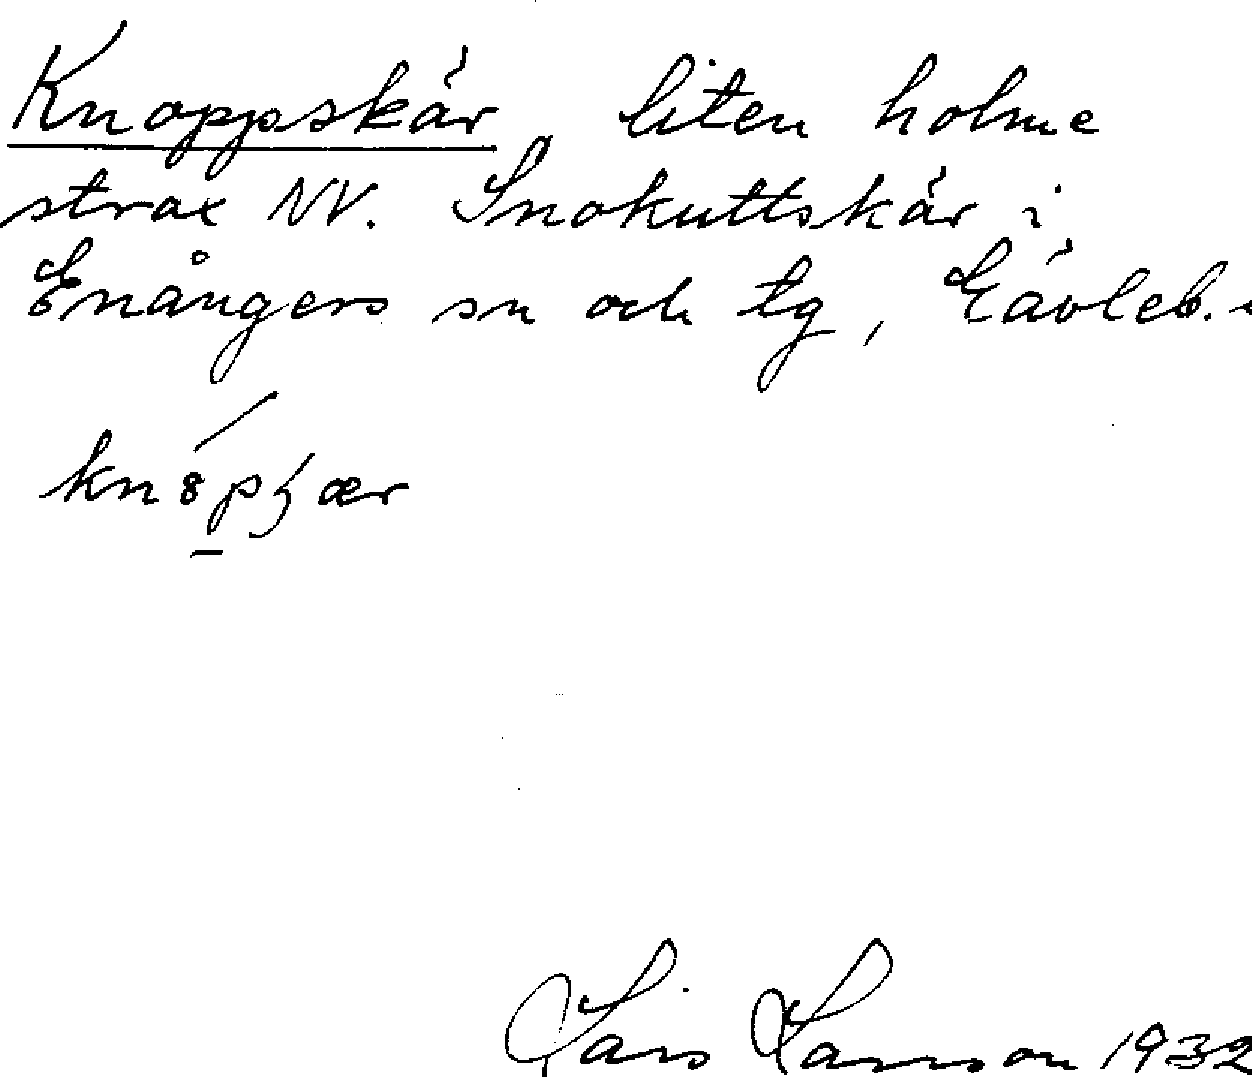 Knoppskär, liten holme
strax NV. Snokuttskär i
Enångers sn och tg, Gävleb.
Lars Larsson 1932